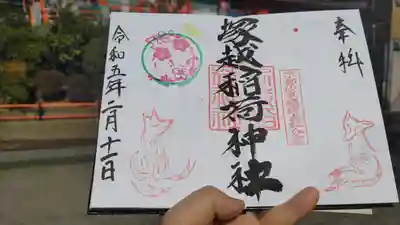 奉拝
塚越稲荷神社
令和五年二月十一日